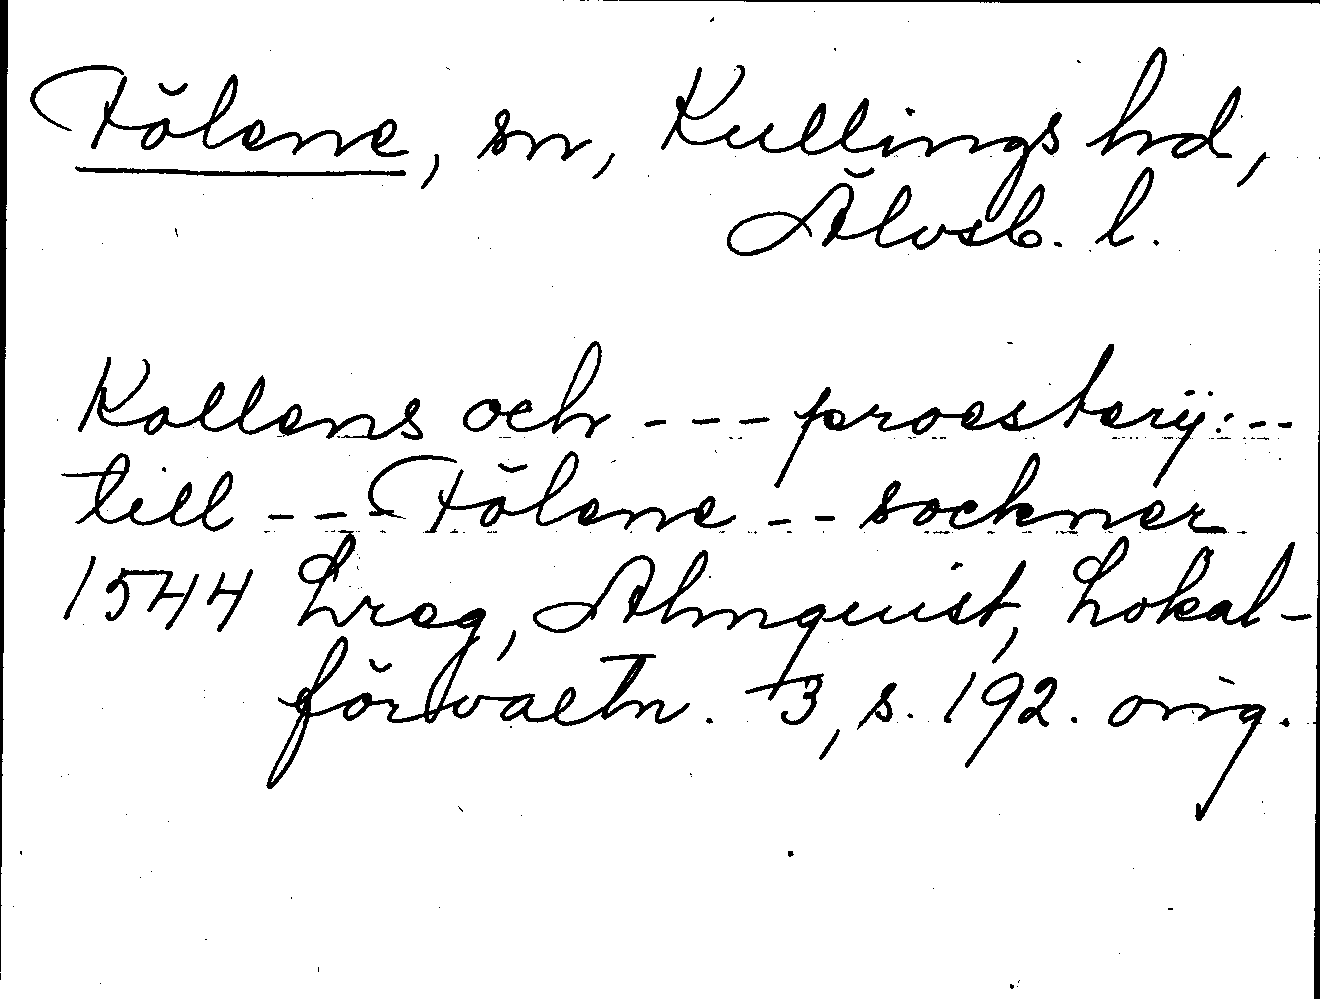 Fölene, sn, Kullings hd,
Älvsb. l.
Kollens och --- proesterij: --
till --- Fölene -- sockner
1544 Lreg, Almquist, Lokal-
förvaltn. 3, s. 192. orig.